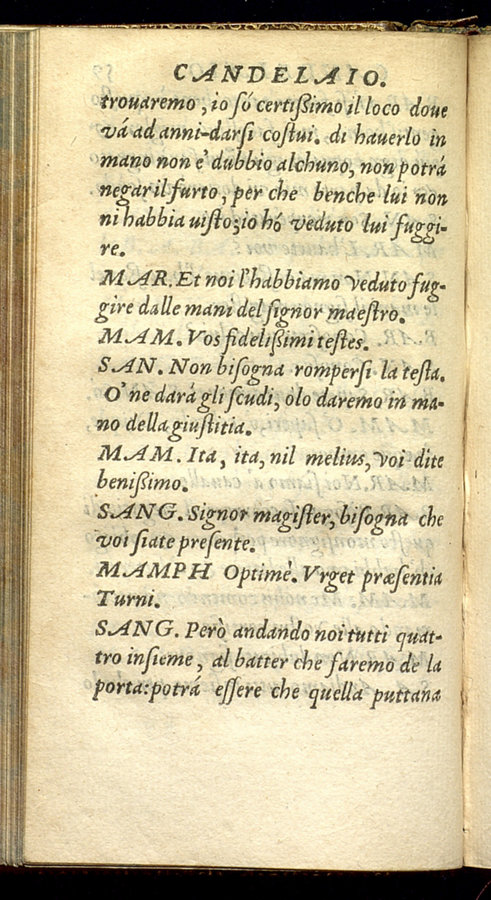 CANDELAIO.
trouaremo, io só certißimo il loco doue
vá ad anni-darsi costui. di hauerlo in
mano non e' dubbio alchuno, non potrá
negar il furto, per che benche lui non
ni habbia uisto; io hó veduto lui fuggi-
re.
MAR. Et noi l'habbiamo veduto fug-
gire dalle mani del signor maestro.
MAM. Vos fidelißimi testes.
SAN. Non bisogna rompersi la testa.
O' ne dará gli scudi, ólo daremo in ma-
no della giustitia.
MAM. Ita, ita, nil melius, voi dite
benißimo.
SANG. Signor magister, bisogna che
voi siate presente.
MAMPH Optimè. Vrget præsentia
Turni.
SANG. Però andando noi tutti quat-
tro insieme, al batter che faremo de la
porta: potrá essere che quella puttana